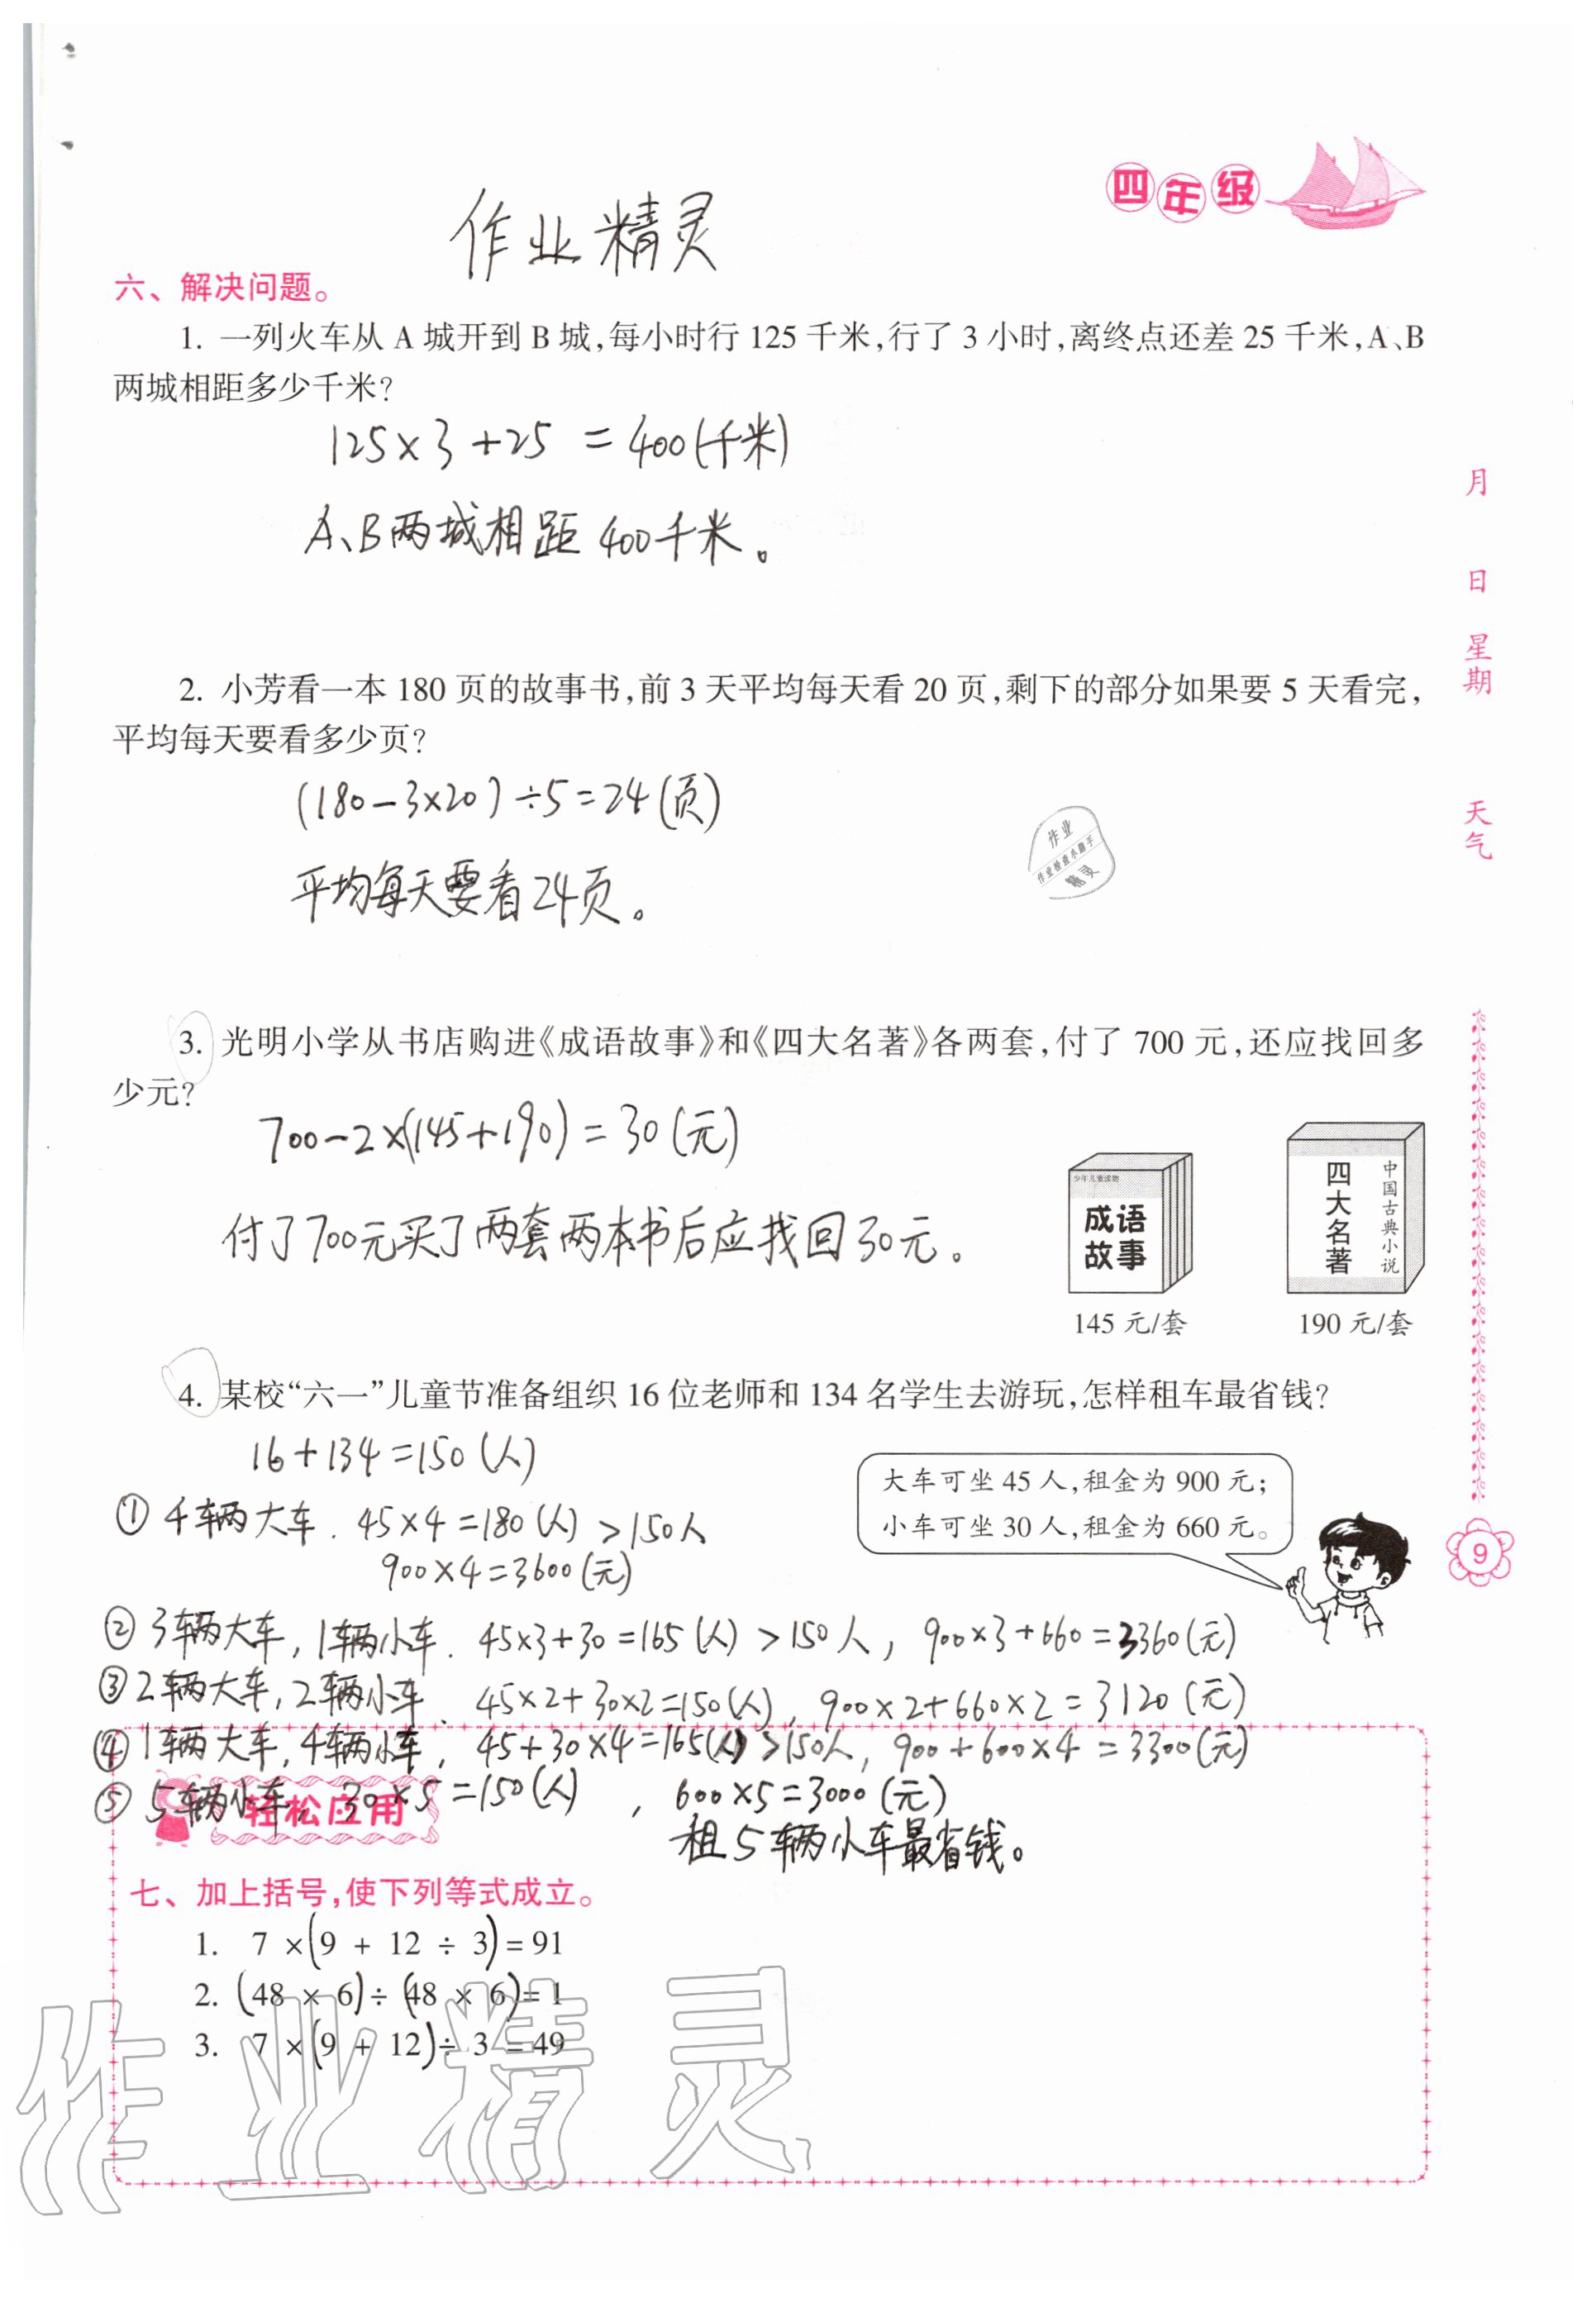 四年级
作业精灵
六、解决问题。
1. 一列火车从 A 城开到 B 城,每小时行 125 千米,行了 3 小时,离终点还差 25 千米,A、B
两城相距多少千米?
125×3+25=400(千米)
A、B两城相距400千米。
2. 小芳看一本 180 页的故事书,前 3 天平均每天看 20 页,剩下的部分如果要 5 天看完,
平均每天要看多少页?
(180-3×20)÷5=24(页)
平均每天要看24页。
作业
作业检查小助手
精灵
3. 光明小学从书店购进《成语故事》和《四大名著》各两套,付了 700 元,还应找回多
少元?
700-2×(145+190)=30(元)
付了700元买了两套两本书后应找回30元。
少年儿童读物
成语
故事
145 元/套
四大名著
中国古典小说
190 元/套
4. 某校“六一”儿童节准备组织 16 位老师和 134 名学生去游玩,怎样租车最省钱?
16+134=150(人)
大车可坐 45 人,租金为 900 元;
小车可坐 30 人,租金为 660 元。
①4辆大车. 45×4=180(人)>150人
900×4=3600(元)
②3辆大车,1辆小车. 45×3+30=165(人)>150人, 900×3+660=3360(元)
③2辆大车,2辆小车. 45×2+30×2=150(人), 900×2+660×2=3120(元)
④1辆大车,4辆小车, 45+30×4=165(人)>150人, 900+600×4=3300(元)
⑤5辆小车, 30×5=150(人), 600×5=3000(元)
租5辆小车最省钱。
轻松应用
七、加上括号,使下列等式成立。
1. 7 ×(9 + 12 ÷ 3)= 91
2. (48 × 6)÷ (48 × 6)= 1
3. 7 ×(9 + 12)÷ 3 = 49
作业精灵
月
日
星期
天气
9